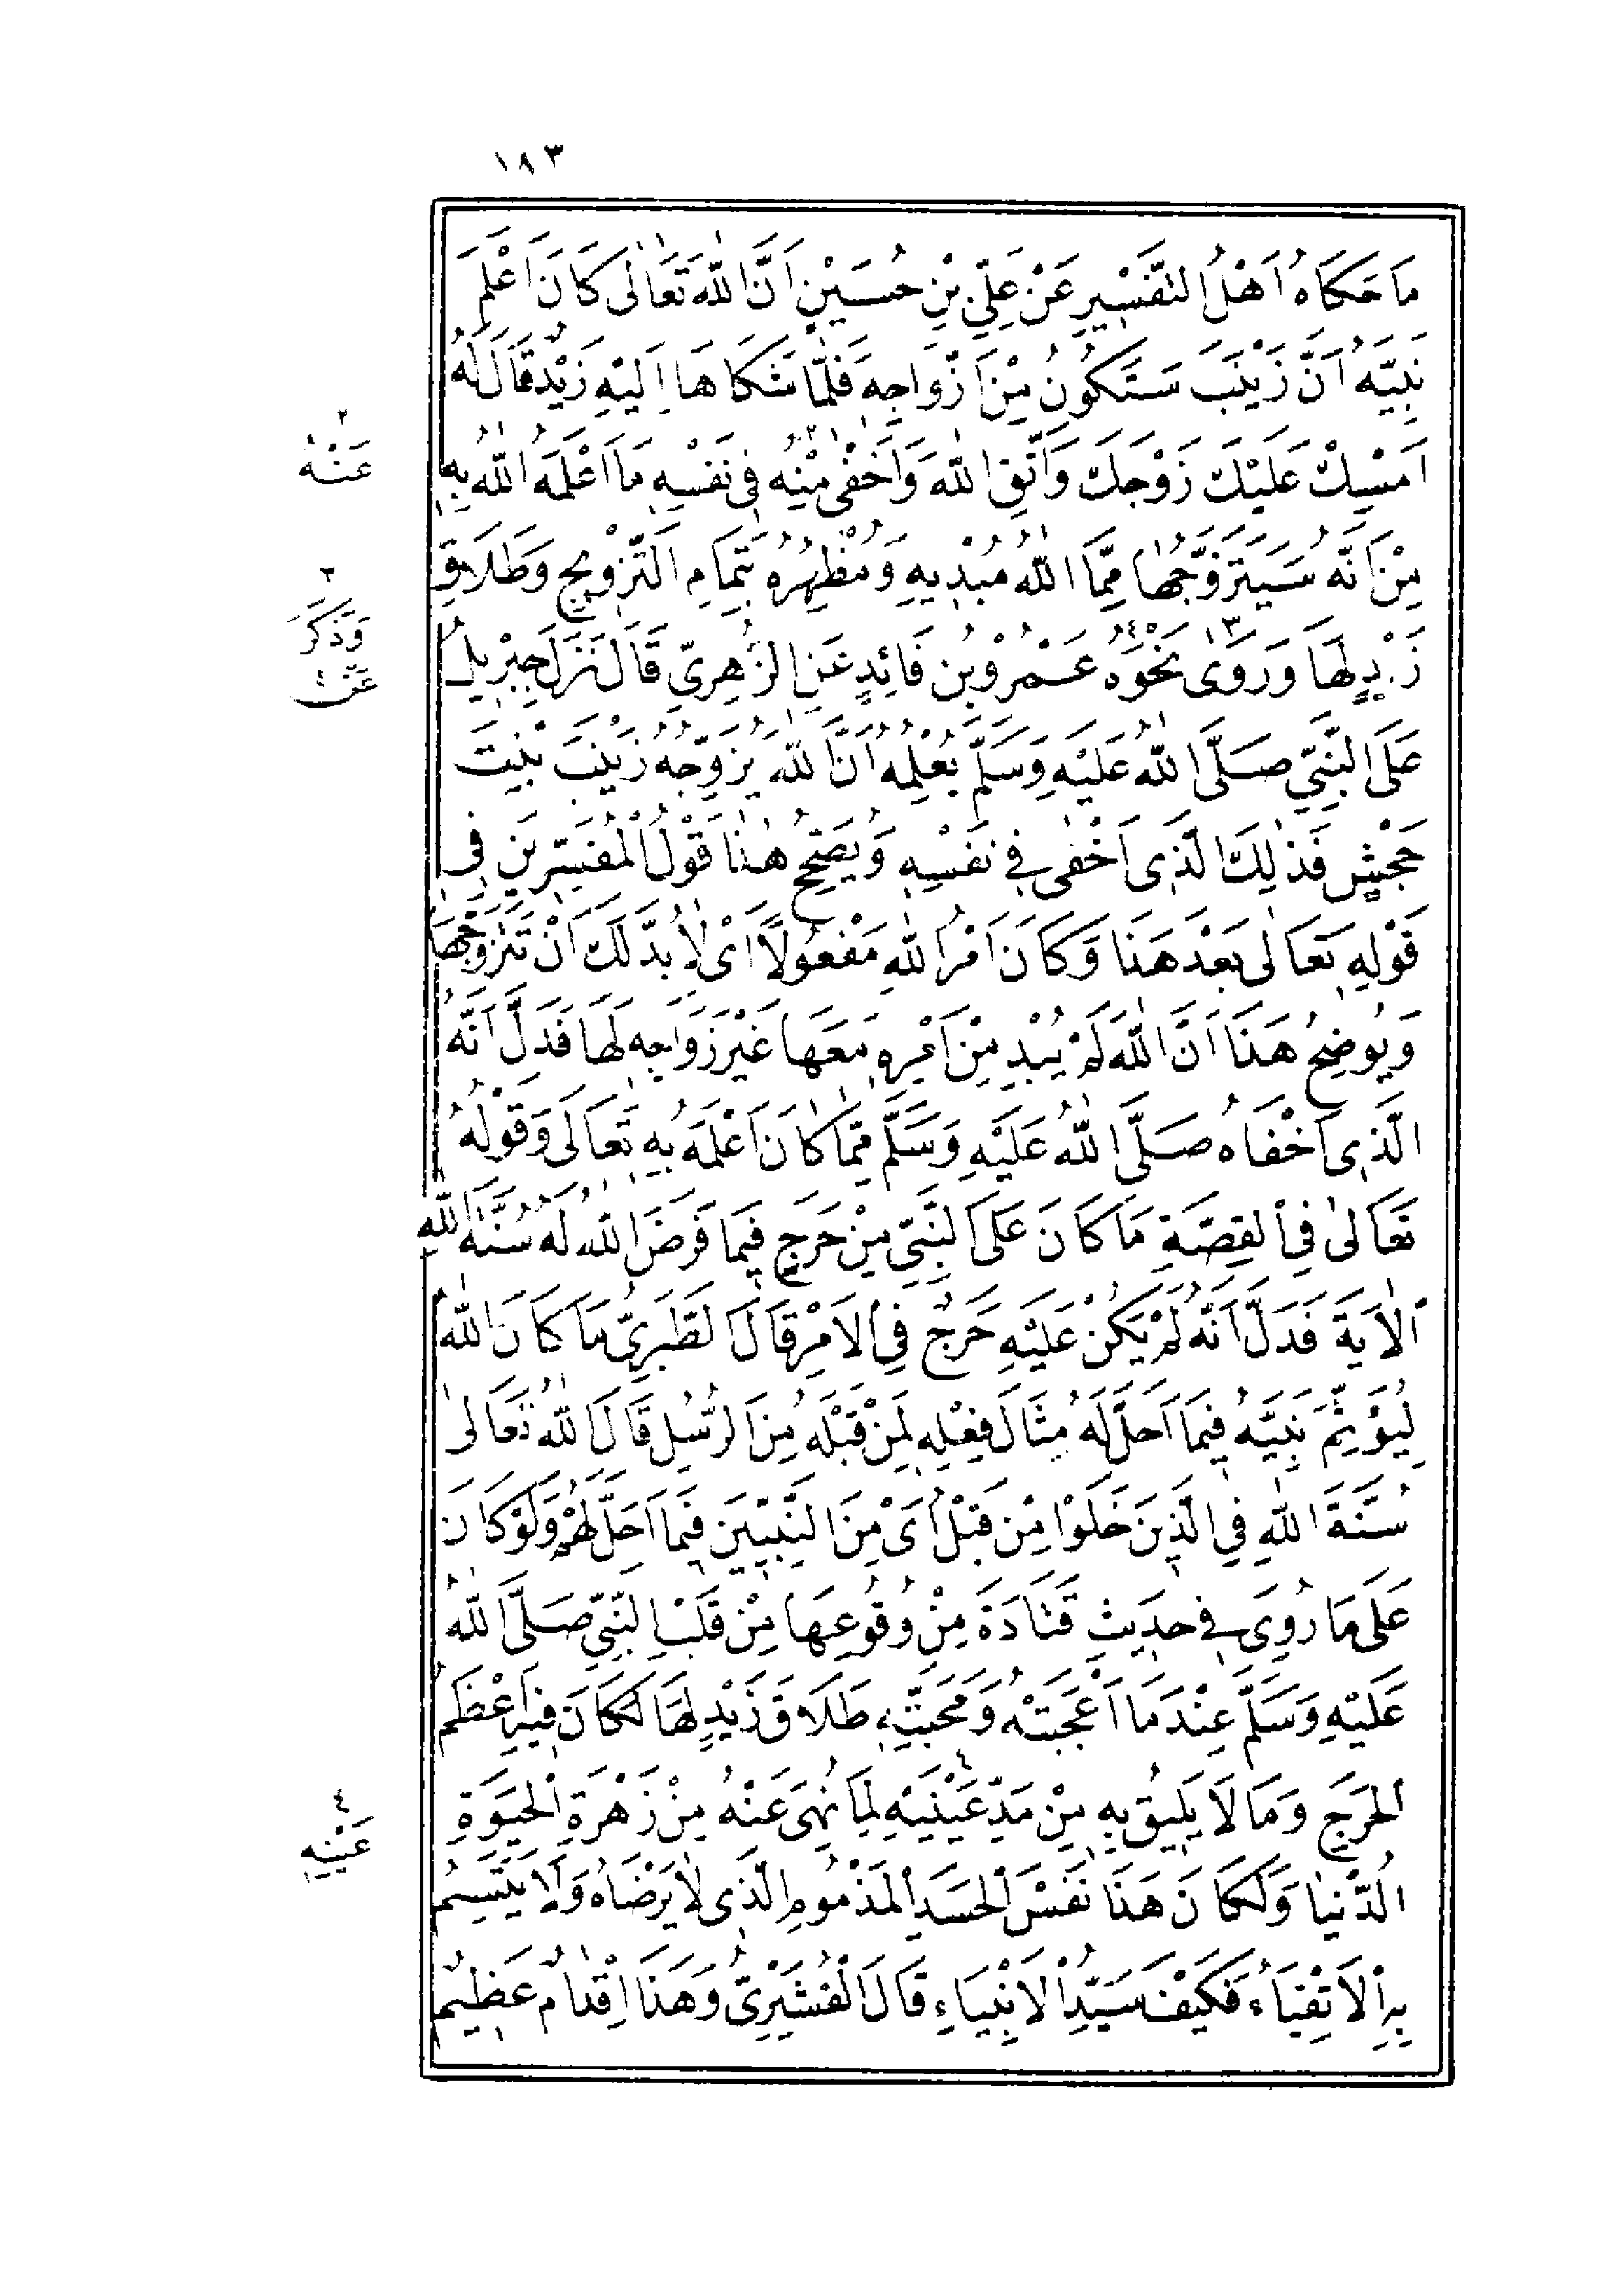 ١٨٣
مَا حَكَاهُ اَهْلُ التَّفْسِيرِ عَنْ عَلِيِّ بْنِ حُسَيْنٍ اَنَّ اللّٰهَ تَعَالٰى كَانَ اَعْلَمَ
نَبِيَّهُ اَنَّ زَيْنَبَ سَتَكُونُ مِنْ اَزْوَاجِهِ فَلَمَّا شَكَاهَا اِلَيْهِ زَيْدٌ قَالَ لَهُ
اَمْسِكْ عَلَيْكَ زَوْجَكَ وَاتَّقِ اللّٰهَ وَاَخْفٰى مِنْهُ فِى نَفْسِهِ مَا اَعْلَمَهُ اللّٰهُ بِهِ
٢
عَنْهُ
مِنْ اَنَّهُ سَيَتَزَوَّجُهَا مِمَّا اللّٰهُ مُبْدِيهِ وَمُظْهِرُهُ بِتَمَامِ التَّزْوِيجِ وَطَلَاقِ
زَيْدٍ لَهَا وَرَوٰى نَحْوَهُ عَمْرُو بْنُ فَائِدٍ عَنِ الزُّهْرِيِّ قَالَ نَزَلَ جِبْرِيلُ
٣
وَذَكَرَ
عَنْ ٤
عَلَى النَّبِيِّ صَلَّى اللّٰهُ عَلَيْهِ وَسَلَّمَ يُعْلِمُهُ اَنَّ اللّٰهَ يُزَوِّجُهُ زَيْنَبَ بِنْتَ
جَحْشٍ فَذٰلِكَ الَّذِى اَخْفٰى فِى نَفْسِهِ وَيُصَحِّحُ هٰذَا قَوْلُ الْمُفَسِّرِينَ فِى
قَوْلِهِ تَعَالٰى بَعْدَ هَذَا وَكَانَ اَمْرُ اللّٰهِ مَفْعُولًا اَىْ لَا بُدَّ لَكَ اَنْ تَتَزَوَّجَهَا
وَيُوضِحُ هَذَا اَنَّ اللّٰهَ لَمْ يُبْدِ مِنْ اَمْرِهِ مَعَهَا غَيْرَ زَوَاجِهِ لَهَا فَدَلَّ اَنَّهُ
الَّذِى اَخْفَاهُ صَلَّى اللّٰهُ عَلَيْهِ وَسَلَّمَ مِمَّا كَانَ اَعْلَمَهُ بِهِ تَعَالَى وَقَوْلُهُ
تَعَالٰى فِى الْقِصَّةِ مَا كَانَ عَلَى النَّبِيِّ مِنْ حَرَجٍ فِيمَا فَرَضَ اللّٰهُ لَهُ سُنَّةَ اللّٰهِ
الْاٰيَةَ فَدَلَّ اَنَّهُ لَمْ يَكُنْ عَلَيْهِ حَرَجٌ فِى الْاَمْرِ قَالَ الطَّبَرِيُّ مَا كَانَ اللّٰهُ
لِيُؤَثِّمَ نَبِيَّهُ فِيمَا اَحَلَّ لَهُ مِثَالَ فِعْلِهِ لِمَنْ قَبْلَهُ مِنَ الرُّسُلِ قَالَ اللّٰهُ تَعَالٰى
سُنَّةَ اللّٰهِ فِى الَّذِينَ خَلَوْا مِنْ قَبْلُ اَىْ مِنَ النَّبِيِّينَ فِيمَا اَحَلَّ لَهُمْ وَلَوْ كَانَ
عَلَى مَا رُوِىَ فِى حَدِيثِ قَتَادَةَ مِنْ وُقُوعِهَا مِنْ قَلْبِ النَّبِيِّ صَلَّى اللّٰهُ
عَلَيْهِ وَسَلَّمَ عِنْدَمَا اَعْجَبَتْهُ وَمَحَبَّتِهِ طَلَاقَ زَيْدٍ لَهَا لَكَانَ فِيهِ اَعْظَمُ
الْحَرَجِ وَمَا لَا يَلِيقُ بِهِ مِنْ مَدِّ عَيْنَيْهِ لِمَا نُهِىَ عَنْهُ مِنْ زَهْرَةِ الْحَيٰوةِ
٤
عَيْنِهِ
الدُّنْيَا وَلَكَانَ هَذَا نَفْسَ الْحَسَدِ الْمَذْمُومِ الَّذِى لَا يَرْضَاهُ وَلَا يَتَّسِمُ
بِهِ الْاَتْقِيَاءُ فَكَيْفَ سَيِّدُ الْاَنْبِيَاءِ قَالَ الْقُشَيْرِيُّ وَهَذَا اِقْدَامٌ عَظِيمٌ